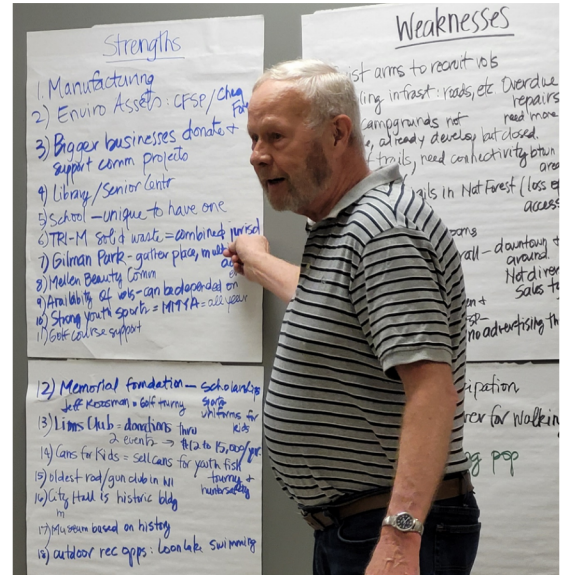 Strengths
1. Manufacturing
2) Enviro Assets: CFSP/Cheq
3) Bigger businesses donate +
support comm projects
4) Library/Senior Centr
5) School - unique to have one
6) TRI-M solid waste = combined jurisd
7) Gilman Park - gather place, mult
8) Mellen Beauty Comm
9) Availability of vols - can be depended on
10) Strong youth sports = MMYSA = all year
11) Golf course support
12) Memorial fondation - scholarships
Jeff = Golf tourny
13) Lions Club = donations thru
uniforms for
kids
2 events → $12 to 15,000/yr.
14) Cans for Kids = sell cans for youth fish
tourny +
15) oldest rod/gun club in WI
16) City Hall is historic bldg
17) Museum based on history
18) outdoor rec opps: Loon Lake swimming
Weaknesses
ist arms to recruit vols
ling infrast: roads, etc Overdue
repairs
campgrounds not need more
e, already develop but closed.
trails, need connectivity btwn
area
ails in Nat Forest (loss of
access
rooms
rall - downtown +
around
Not diver
sales t
en +
no advertising th
ipation
er for walkin
g pop